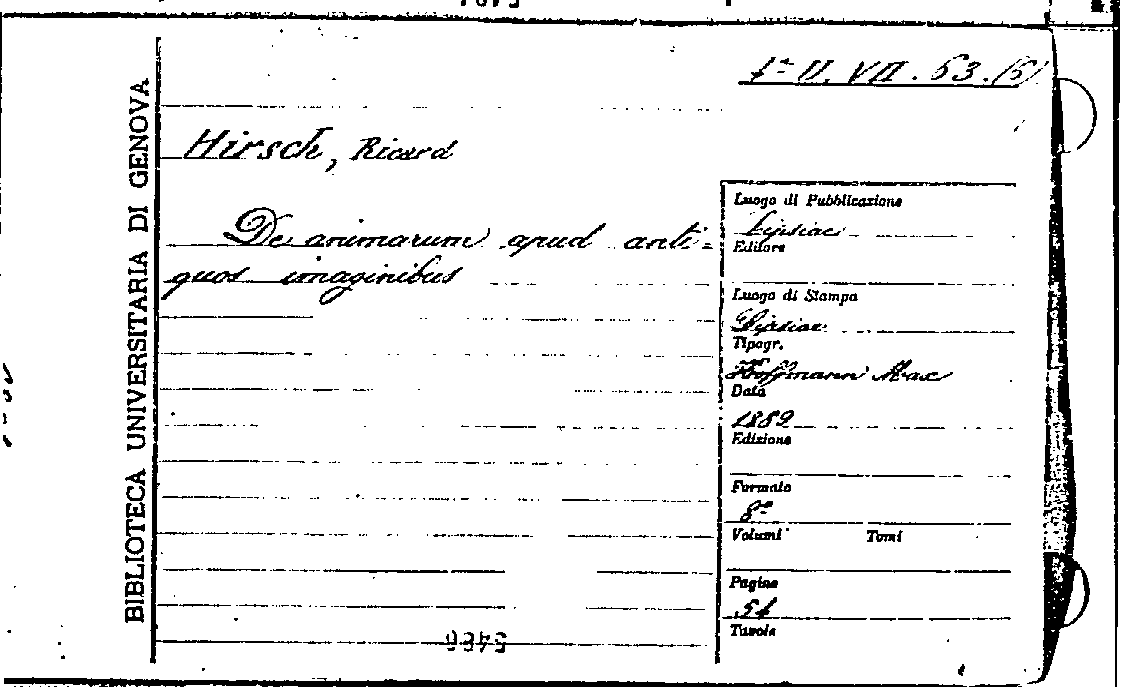 1ª U. VII. 53. (5)
BIBLIOTECA UNIVERSITARIA DI GENOVA
Hirsch, Ricard
De animarum apud anti=
quos imaginibus
Luogo di Pubblicazione
Lipsiae
Editore
Luogo di Stampa
Lipsiae
Tipogr.
Hoffmann Max
Data
1889
Edizione
Formato
8º
Volumi Tomi
Pagine
Tavole